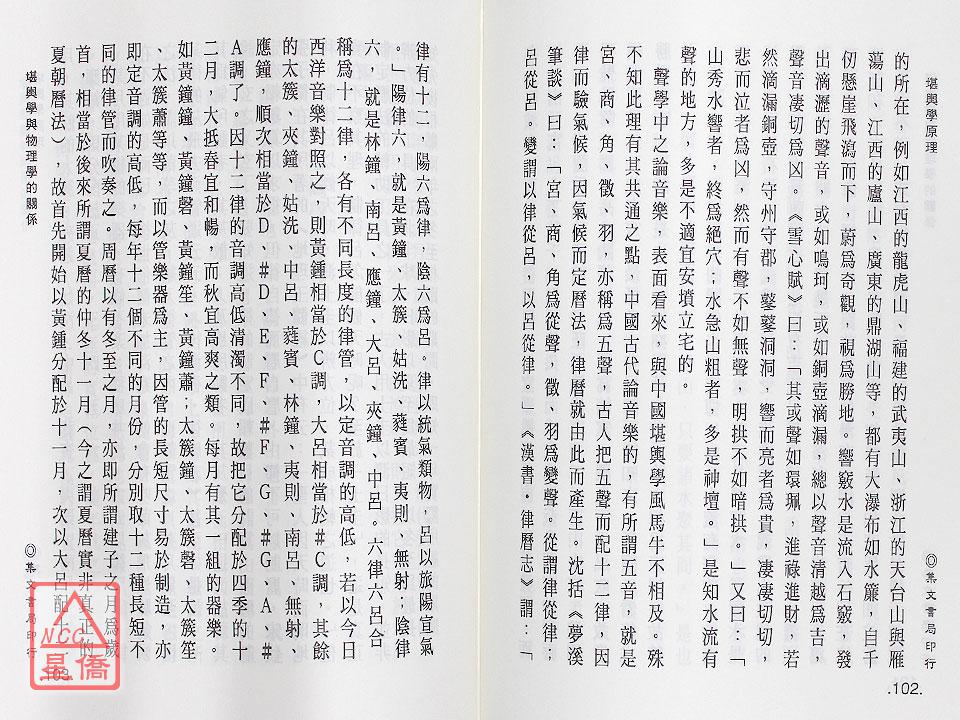 堪輿學原理
的所在，例如江西的龍虎山、福建的武夷山、浙江的天台山與雁
蕩山、江西的廬山、廣東的鼎湖山等，都有大瀑布如水簾，自千
仞懸崖飛瀉而下，蔚爲奇觀，視爲勝地。響竅水是流入石竅，發
出滴瀝的聲音，或如鳴珂，或如銅壺滴漏，總以聲音清越爲吉，
聲音凄切爲凶。《雪心賦》曰：「其或聲如環珮，進祿進財，若
然滴漏銅壺，守州守郡，鼕鼕洞洞，響而亮者爲貴，凄凄切切，
悲而泣者爲凶，然而有聲不如無聲，明拱不如暗拱。」又曰：「
山秀水響者，終爲絕穴；水急山粗者，多是神壇。」是知水流有
聲的地方，多是不適宜安墳立宅的。
聲學中之論音樂，表面看來，與中國堪輿學風馬牛不相及。殊
不知此理有其共通之點，中國古代論音樂的，有所謂五音，就是
宮、商、角、徵、羽，亦稱爲五聲，古人把五聲而配十二律，因
律而驗氣候，因氣候而定曆法，律曆就由此而產生。沈括《夢溪
筆談》曰：「宮、商、角爲從聲，徵、羽爲變聲。從謂律從律；
呂從呂。變謂以律從呂，以呂從律。」《漢書·律曆志》謂：「
◎集文書局印行
.102.
律有十二，陽六爲律，陰六爲呂。律以統氣類物，呂以旅陽宣氣
。」陽律六，就是黃鐘、太簇、姑洗、蕤賓、夷則、無射；陰律
六，就是林鐘、南呂、應鐘、大呂、夾鐘、中呂。六律六呂合
稱爲十二律，各有不同長度的律管，以定音調的高低，若以今日
西洋音樂對照之，則黃鍾相當於C調，大呂相當於#C調，其餘
的太簇、夾鐘、姑洗、中呂、蕤賓、林鐘、夷則、南呂 無射、
應鐘，順次相當於D、#D、E、F、#F、G、#G A、#
A調了。因十二律的音調高低清濁不同，故把它分配於四季的十
二月，大抵春宜和暢，而秋宜高爽之類。每月有其一組的器樂。
如黃鐘鐘、黃鐘磬、黃鐘笙、黃鐘蕭；太簇鐘、太簇磬、太簇笙
、太簇蕭等等，而以管樂器爲主，因管的長短尺寸易於制造，亦
即定音調的高低，每年十二個不同的月份，分別取十二種長短不
同的律管而吹奏之。周曆以有冬至之月，亦即所謂建子之月爲歲
首，相當於後來所謂夏曆的仲冬十一月（今之謂夏曆實非真正的
夏朝曆法），故首先開始以黃鍾分配於十一月，次以大呂配十
堪輿學與物理學的關係
◎集文書局印行
.103.
NCC
星僑